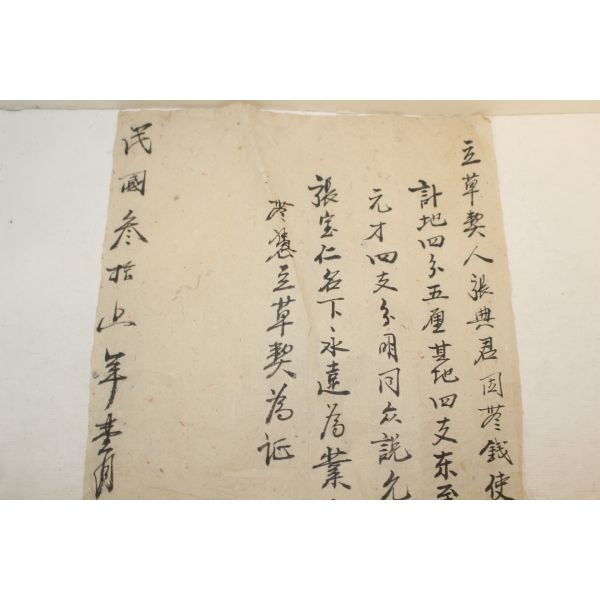 立草契人張典君因無錢使
計地四分五厘其地四支东至
元才四支分明同众説允
張宝仁名下永遠為業
恐 立草契為证
民國叁拾 年 月